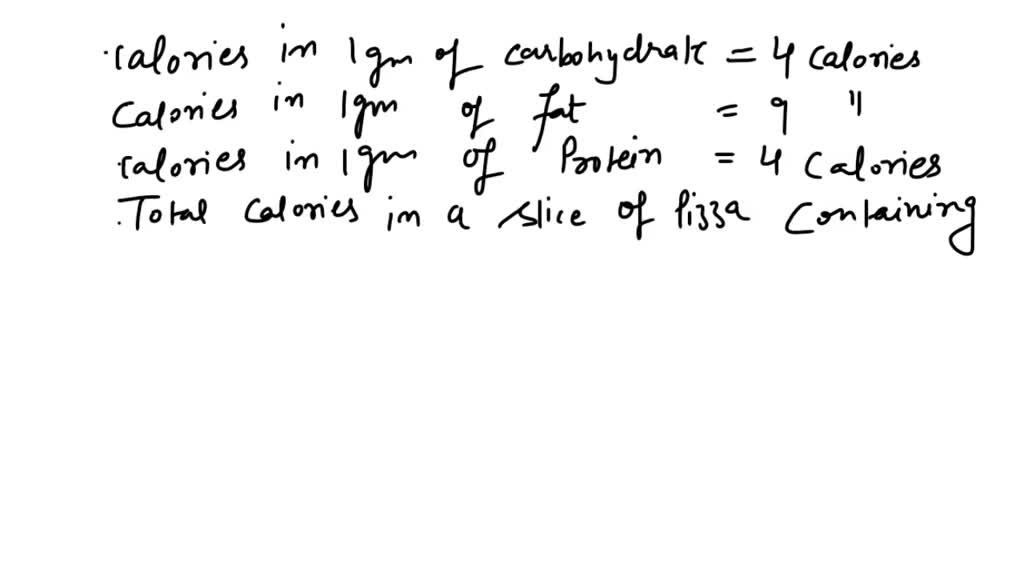 Calories in 1gm of carbohydrate = 4 calories
Calories in 1gm of fat = 9 "
Calories in 1gm of Protein = 4 Calories
Total Calories in a slice of Pizza Containing